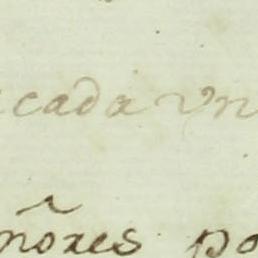 cada vn
ñores po